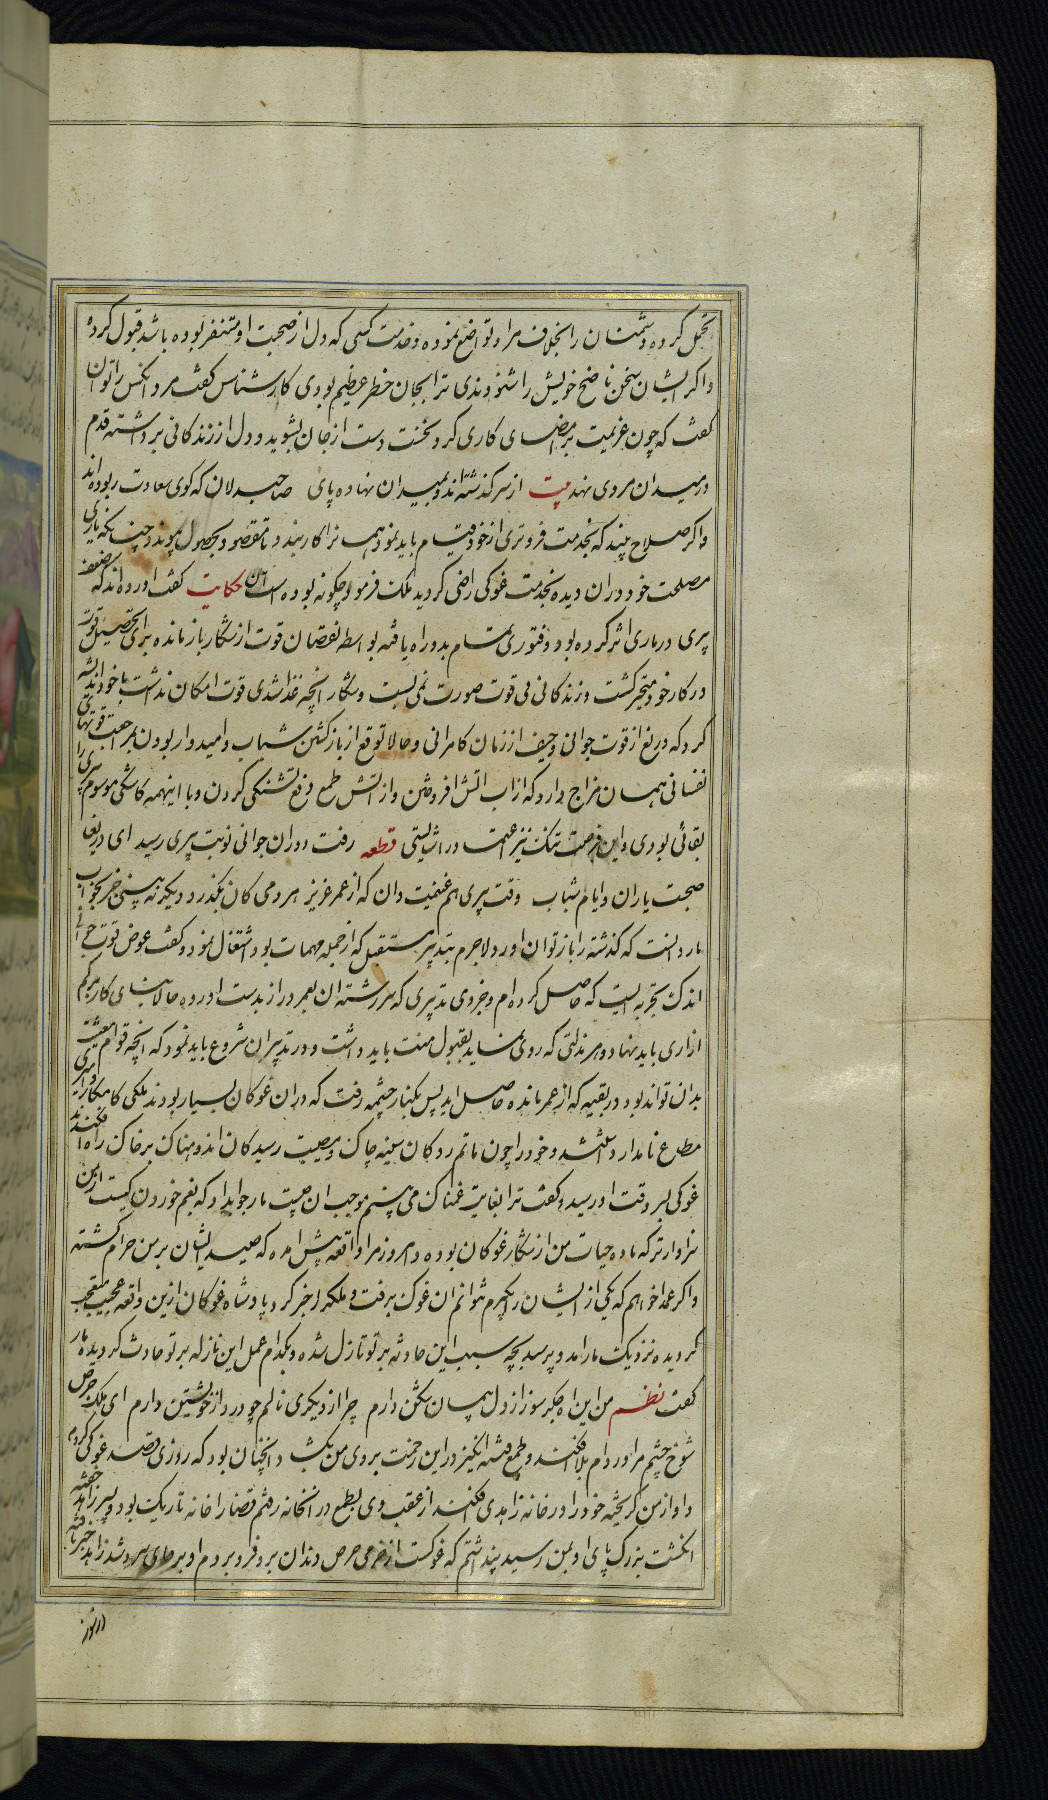 تحمل کرده و دشمنان را بخلاف مراد تواضع نموده و خدمت کسی که دل از صحبت او متنفر بوده باشد قبول کرده
و اگر ایشان سخن ناصح خویش را شنودندی ترا بجان خطر عظیم بودی کارشناس گفت مرد آنکس را توان
گفت که چون عزیمت بر امضای کاری کرد نخست دست از جان بشوید و دل از زندگانی برداشته قدم
در میدان مردی نهد بیت از سر گذشته اند و بمیدان نهاده پای صاحبدلان که گوی سعادت ربوده اند
و اگر صلاح بیند که بخدمت فروتری از خود قیام باید نمود همانرا کار بندد تا مقصود بحصول پیوندد چنانکه ماری
مصلحت خود در آن دیده بخدمت غوکی راضی گردید ملک فرمود چگونه بوده است آن حکایت گفت آورده اند که ضعف
پیری در ماری اثر کرده بود و فتوری تمام بدو راه یافته بواسطه نقصان قوت از شکار بازمانده برای تحصیل قوت
در کار خود متحیر گشت و زندگانی بی قوت صورت نمی بست و شکار آنچه غذا شدی قوت امکان نداشت با خود اندیشه
کرد که دریغ از قوت جوانی و حیف از زمان کامرانی و حالا توقع از بازگشتن شباب و امیدوار بودن بمراجعت قوتهای
نفسانی همان مزاج دارد که از آب آتش افروختن و از آتش طمع دفع تشنگی کردن و با اینهمه کاشکی موسم پیری را
بقائی بودی و این فرصت تنک نیز اعتماد را شایستی قطعه رفت دوران جوانی نوبت پیری رسید ای دریغا
صحبت یاران و ایام شباب وقت پیری هم غنیمت دان که از عمر عزیز هر دمی کان بگذرد دیگر نه بینی جز بخواب
مار دانست که گذشته را باز نتوان آورد لاجرم بتدبیر مستقبل که از جمله مهمات بود اشتغال نمود و گفت عوض قوت جوانی
اندک تجربه ایست که حاصل کرده ام و جزوی تدبیری که سررشته آن بعمر دراز بدست آورده حالا بنای کار بر کم
آزاری باید نهاد و هر مذلتی که روی نماید بقبول منت باید داشت و در تدبیر آن شروع باید نمود که آنچه قوام معیشت
بدان تواند بود در بقیه که از عمر مانده حاصل آید پس بکنار چشمه رفت که در آن غوکان بسیار بودند ملکی کامکار و امیری
مطاع نامدار داشتند و خود را چون ماتم زدگان سینه چاک و مصیبت رسیدگان اندوهناک بر خاک راه افکند
غوکی بسر وقت او رسید و گفت ترا بغایت غمناک می بینم موجب آن چیست مار جواب داد که بغم خوردن کیست از من
سزاوارتر که ماده حیات من از شکار غوکان بوده و امروز مرا واقعه پیش آمده که صید ایشان بر من حرام گشته
و اگر عمدا خواهم که یکی از ایشان را بگیرم نتوانم آن غوک برفت و ملک را خبر کرد پادشاه غوکان ازین واقعه عجیب متعجب
گردیده نزدیک مار آمد و پرسید بچه سبب این حادثه بر تو نازل شده و بکدام عمل این نازله بر تو حادث گردیده مار
گفت نظم من این آه جگرسوز از دل پیمان شکن دارم چرا از دیگری نالم چو درد از خویشتن دارم ای ملک حرص
شوخ چشم مرا در دام بلا افکند و طمع فتنه انگیز در این رخت بروی من بگشاد و آنچنان بود که روزی قصد غوکی کردم
و او از من گریخته خود را در خانه زاهدی افکند از عقب وی بطمع در آنخانه رفتم قضا را خانه تاریک بود و پسر زاهد خفته
انگشت بزرگ پای او بمن رسید پنداشتم که غوکست از گرمی حرص دندان برو فرو بردم او بر جای سرد شد زاهد خبر یافته
از سوز